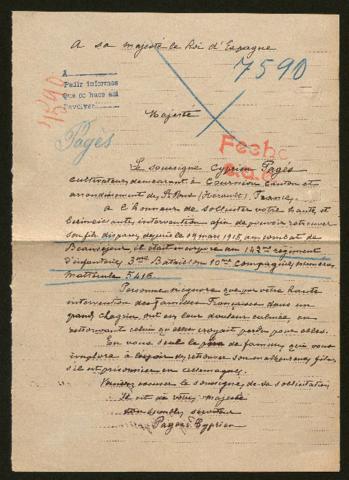 A sa majesté le Roi d'Espagne
7590
A
Pedir informes
Que se haga
Devolver
7590
Majesté
Pagès
Fecha
Le soussigné Cyprien Pagès
cultivateur demeurant à Cournion canton et
arrondissement de St Pons (Herault) France,
a l'honneur de solliciter votre haute et
intervention afin de pouvoir retrouver
son fils disparu depuis le 19 mars 1915, au combat de
Beausejour et était incorporé au 142me regiment
d'infanterie 3me Bataillon 10me Compagnie, numéro
matricule 5416
Personne n'ignore que par votre haute
intervention des familles Françaises dans un
grand chagrin ont eu leur douleur calmée en
retrouvant celui qu'elles croyait perdu pour elles.
En vous seul le père de famille qui vous
implore à l'espoir de retrouver son malheureux fils
s'il est prisonnier en allemagne.
le soussigné de sa sollicitation
Il est de votre majesté
son humble serviteur
Pagès Cyprien